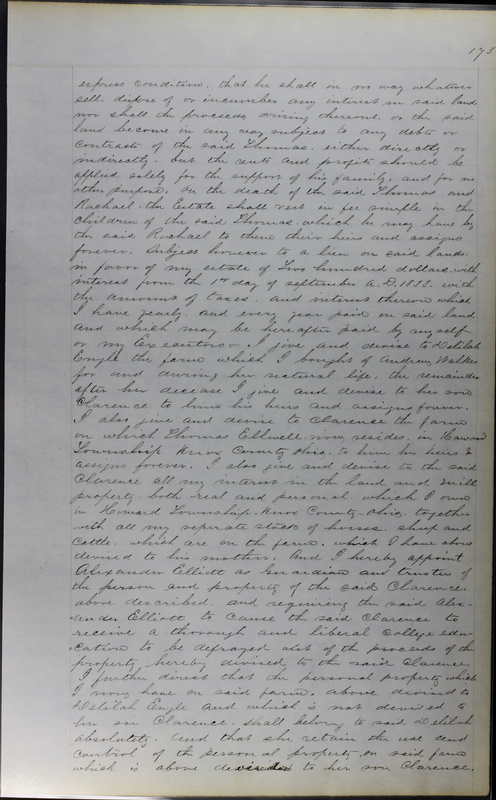 173
express conditions. that he shall in no way whatever
sell. dispose of or incumber any interest in said land
nor shall the proceeds arising thereout. or the said
land become in any way subject to any debts or
contracts of the said Thomas. either directly or
indirectly. but the rents and profits should be
applied solely for the support of his family. and for no
other purpose. On the death of the said Thomas and
Rachael. the Estate shall vest in fee simple in the
children of the said Thomas. which he may have by
the said Rachael to them their heirs and assigns
forever. Subject however to a lien on said lands.
in favor of my estate of Two hundred dollars, with
interest from the 1st day of september A.D. 1833. with
the amount of taxes. and interest thereon which
I have yearly. and every year paid on said land
and which may be hereafter paid by myself
or my Executors. I give and devise to Delilah
Engle the farm which I bought of Andrew Walker
for and during her natural life. the remainder
after her decease I give and devise to her son
Clarence to him his heirs and assigns forever.
I also give and devise to Clarence the farm
on which Thomas Ellwell. now resides. in Howard
Township Knox County Ohio. to him his heirs &
assigns forever. I also give and devise to the said
Clarence all my interest in the land and mill
property both real and personal which I own
in Howard Township. Knox County. Ohio. together
with all my seperate stock of horses, sheep and
cattle. which are on the farm. which I have above
devised to his mother. And I hereby appoint
Alexander Elliott as Guardian and trustee of
the person and property of the said Clarence
above described. and requiring the said Alex-
ander Elliott to cause the said Clarence to
receive a thorough and liberal college edu-
cation to be defrayed out of the proceeds of the
property hereby devised, to the said Clarence.
I further direct that the personal property which
I now have on said farm. above devised to
Delilah Engle and which is not devised to
her son Clarence. shall belong to said Delilah
absolutely. And that she retain the use and
control of the personal property on said farm
which is above devised to her son Clarence.